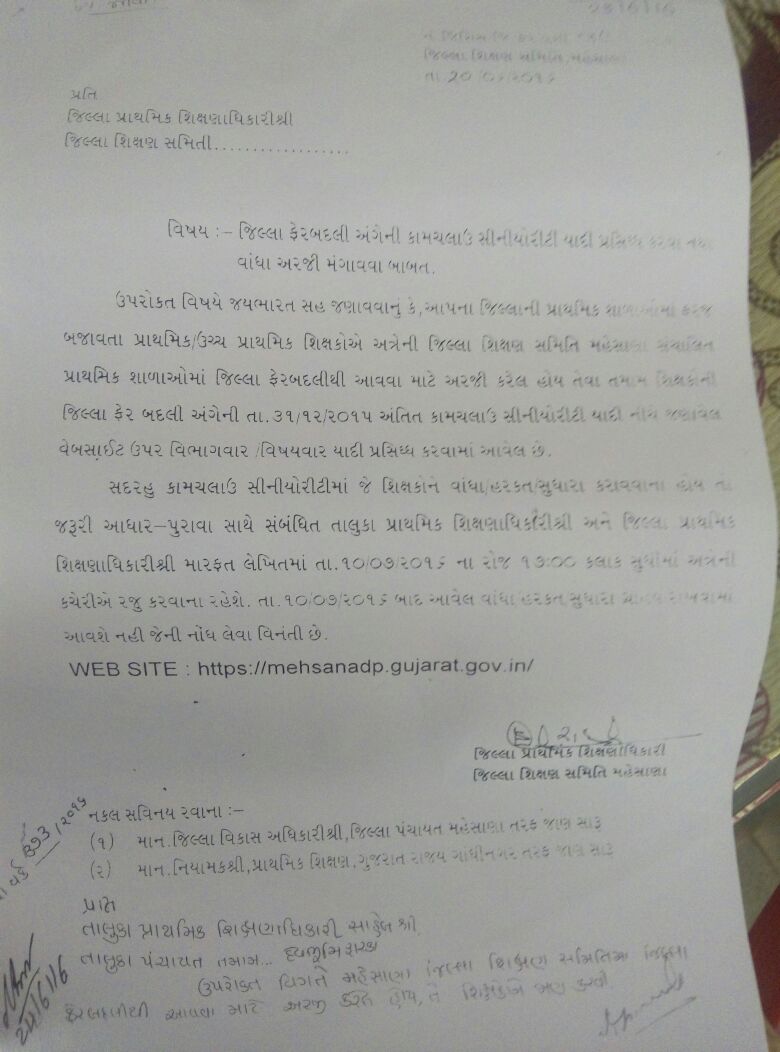 જિલ્લા શિક્ષણ સમિતિ મહેસાણા
તા.૨૦/૦૬/૨૦૧૬
પ્રતિ
જિલ્લા પ્રાથમિક શિક્ષણાધિકારીશ્રી
જિલ્લા શિક્ષણ સમિતી..................
વિષય :– જિલ્લા ફેરબદલી અંગેની કામચલાઉ સીનીયોરીટી યાદી પ્રસિધ્ધ કરવા તથા
વાંધા અરજી મંગાવવા બાબત.
ઉપરોકત વિષયે જયભારત સહ જણાવવાનુ કે,આપના જિલ્લાની પ્રાથમિક શાળાઓમાં ફરજ
બજાવતા પ્રાથમિક/ઉચ્ચ પ્રાથમિક શિક્ષકોએ અત્રેની જિલ્લા શિક્ષણ સમિતિ મહેસાણા સંચાલિત
પ્રાથમિક શાળાઓમાં જિલ્લા ફેરબદલીથી આવવા માટે અરજી કરેલ હોય તેવા તમામ શિક્ષકોની
જિલ્લા ફેર બદલી અંગેની તા.૩૧/૧૨/૨૦૧૫ અંતિત કામચલાઉ સીનીયોરીટી યાદી નીચે જણાવેલ
વેબસાઈટ ઉપર વિભાગવાર /વિષયવાર યાદી પ્રસિધ્ધ કરવામાં આવેલ છે.
સદરહુ કામચલાઉ સીનીયોરીટીમાં જે શિક્ષકોને વાંધા/હરકત/સુધારા કરાવવાના હોય તો
જરૂરી આધાર–પુરાવા સાથે સંબંધિત તાલુકા પ્રાથમિક શિક્ષણાધિકારીશ્રી અને જિલ્લા પ્રાથમિક
શિક્ષણાધિકારીશ્રી મારફત લેખિતમાં તા.૧૦/૦૭/૨૦૧૬ ના રોજ ૧૭:૦૦ કલાક સુધીમાં અત્રેની
કચેરીએ રજુ કરવાના રહેશે. તા.૧૦/૦૭/૨૦૧૬ બાદ આવેલ વાંધા/હરકત/સુધારા ગ્રાહ્ય રાખવામાં
આવશે નહી જેની નોંધ લેવા વિનંતી છે.
WEB SITE : https://mehsanadp.gujarat.gov.in/
જિલ્લા પ્રાથમિક શિક્ષણાધિકારી
જિલ્લા શિક્ષણ સમિતિ મહેસાણા
નકલ સવિનય રવાના :–
(૧) માન.જિલ્લા વિકાસ અધિકારીશ્રી,જિલ્લા પંચાયત મહેસાણા તરફ જાણ સારૂ
(૨) માન.નિયામકશ્રી,પ્રાથમિક શિક્ષણ,ગુજરાત રાજય ગાંધીનગર તરફ જાણ સારૂ
પ્રતિ
તાલુકા પ્રાથમિક શિક્ષણાધિકારી સાહેબ શ્રી
તાલુકા પંચાયત તમામ... દેવભૂમિ દ્વારકા
ઉપરોક્ત વિગતે મહેસાણા જિલ્લા શિક્ષણ સમિતિમાં જિલ્લા
ફેરબદલીથી આવવા માટે અરજી કરેલ હોય, તે શિક્ષકોને જાણ કરવી